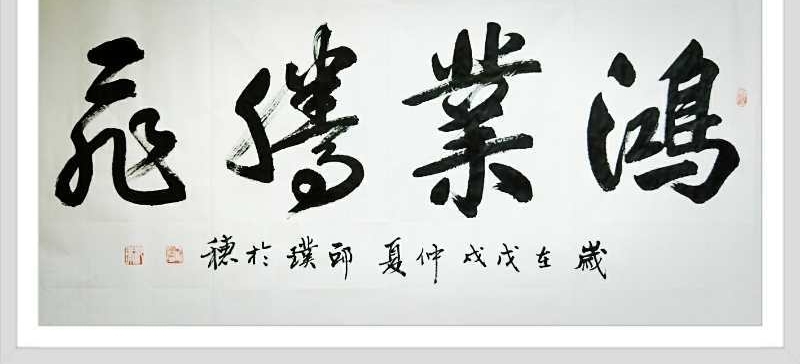 鴻業騰飛
歲在戊戌仲夏 邱璞於穗